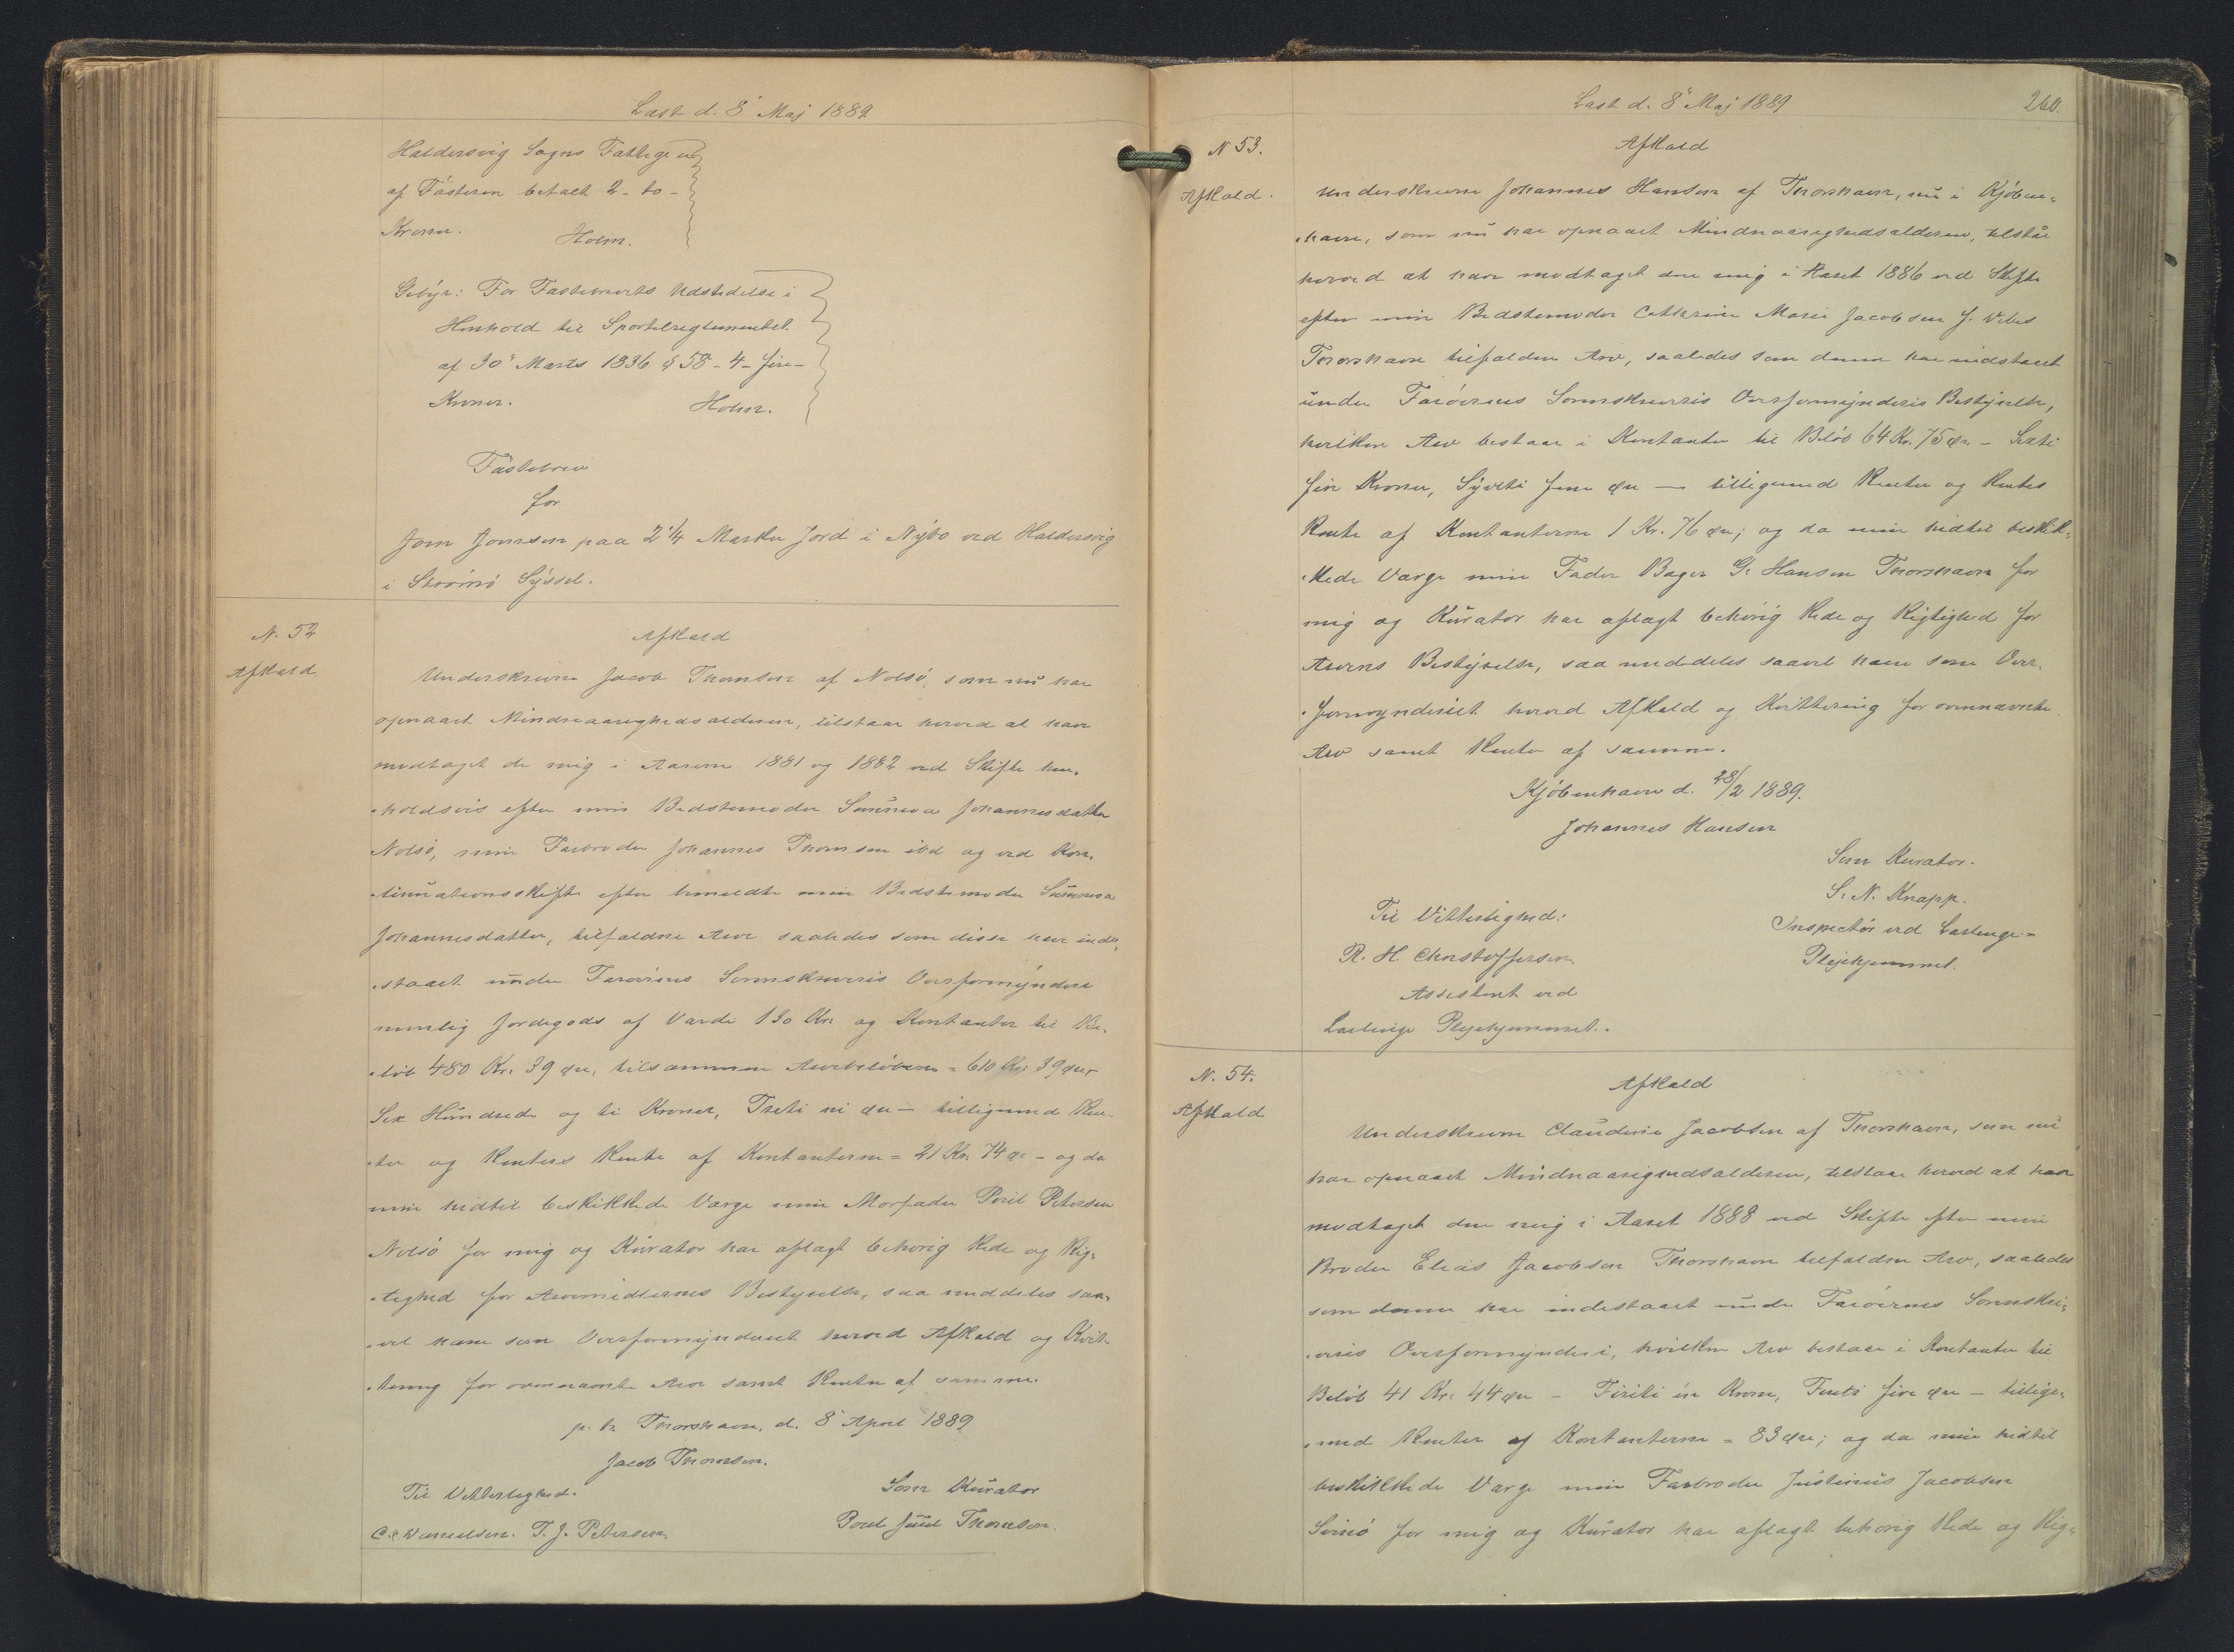 Læst d. 8' Maj 1889.
Haldersvig Sogns Fattigv
af Fästeren betalt 2 - to -
Kroner. Holm.
Gebyr: For Fastebrevets Udstedelse i
Henhold til Sportelreglementet
af 30' Marts 1836 § 58 - 4 - fire -
Kroner. Holm.
Fästebrev
for
Joen Joensen paa 2 1/4 Marker Jord i Nÿbo ved Haldersvig
i Strömö Sÿssel.
N. 52
Afkald
Afkald
Underskrevne Jacob Thomsen af Nolsö, som nu har
opnaaet Mindreaarighedsalderen, tilstaar herved at have
modtaget de mig i Aarene 1881 og 1882 ved Skifte hen-
-holdsvis efter min Bedstemoder Sunneva Johannesdatter
Nolsö, min Farbroder Johannes Thomsen ibd og ved Kon-
-tinuationsskifte efter bemeldte min Bedstemoder Sunneva
Johannesdatter, tilfaldne Arve saaledes som disse har inde-
-staaet under Færöernes Sorenskriveris Overformÿnderi
nemlig Jordegods af Værdi 130 Kr. og Kontanter til Be-
-löb 480 Kr. 39 Øre, tilsammen Arvebelöbene = 610 Kr. 39 Øre
Sex Hundrede og ti Kroner, Treti ni Øre - tilligemed Ren-
-ter og Renters Rente af Kontanterne = 21 Kr. 74 Ø. - og da
min hidtil beskikkede Værge min Morfader Poul Petersen
Nolsö for mig og Kurator har aflagt behörig Rede og Rig-
-tighed for Arvemidlernes Bestyrelse, saa meddeles saa-
-vel ham som Overformÿnderiet herved Afkald og Kvit-
-tering for ovennævnte Arve samt Renter af samme.
p. t. Thorshavn, d. 8' April 1889
Jacob Thomsen.
Til Vitterlighed. Som Kurator
C. C. Danielsen. T. J. Petersen. Poul Juul Thomsen.
Læst d. 8' Maj 1889 260.
N 53.
Afkald
Afkald.
Underskrevne Johannes Hansen af Thorshavn, nu i Kjöben-
-havn, som nu har opnaaet Mindreaarighedsalderen, tilstår
herved at have modtaget den mig i Aaret 1886 ved Skifte
efter min Bedstemoder Cathrine Marie Jacobsen f. Debes
Thorshavn tilfaldne Arv, saaledes som denne har indestaaet
under Færöernes Sorenskriveris Overformÿnderis Bestÿrelse,
hvilken Arv bestaar i Kontanter til Belöb 64 Kr. 75 Ør. - Sexti
fire Kroner, Sÿvti fem Øre - tilligemed Renter og Renters
Rente af Kontanterne 1 Kr. 76 Øre; og da min hidtil beskik-
-kede Værge min Fader Bager G. Hansen Thorshavn for
mig og Kurator har aflagt behörig Rede og Rigtighed for
Arvens Bestÿrelse, saa meddeles saavel ham som Over-
-formynderiet herved Afkald og Kvittering for ovennævnte
Arv samt Renter af samme.
Kjöbenhavn d. 28/2 1889.
Johannes Hansen
Som Kurator.
S. N. Knapp.
Til Vitterlighed: Inspectör ved Ladegå-
R. H. Christoffersen. Plejehjemmet.
Assistent ved
Plejehjemmet.
N. 54.
Afkald
Afkald
Underskrevne Claudine Jacobsen af Thorshavn, som nu
har opnaaet Mindreaarighedsalderen, tilstaar herved at have
modtaget den mig i Aaret 1888 ved Skifte efter min
Broder Elias Jacobsen Thorshavn tilfaldne Arv, saaledes
som denne har indestaaet under Færöernes Sorenskri-
-veris Overformynderi, hvilken Arv bestaar i Kontanter til
Belöb 41 Kr. 44 Øre - Firiti én Krone, Firiti fire Øre - tillige-
-med Renter af Kontanterne = 83 Øre; og da min hidtil
beskikkede Værge min Farbroder Justinus Jacobsen
Svinö for mig og Kurator har aflagt behörig Rede og Rig-